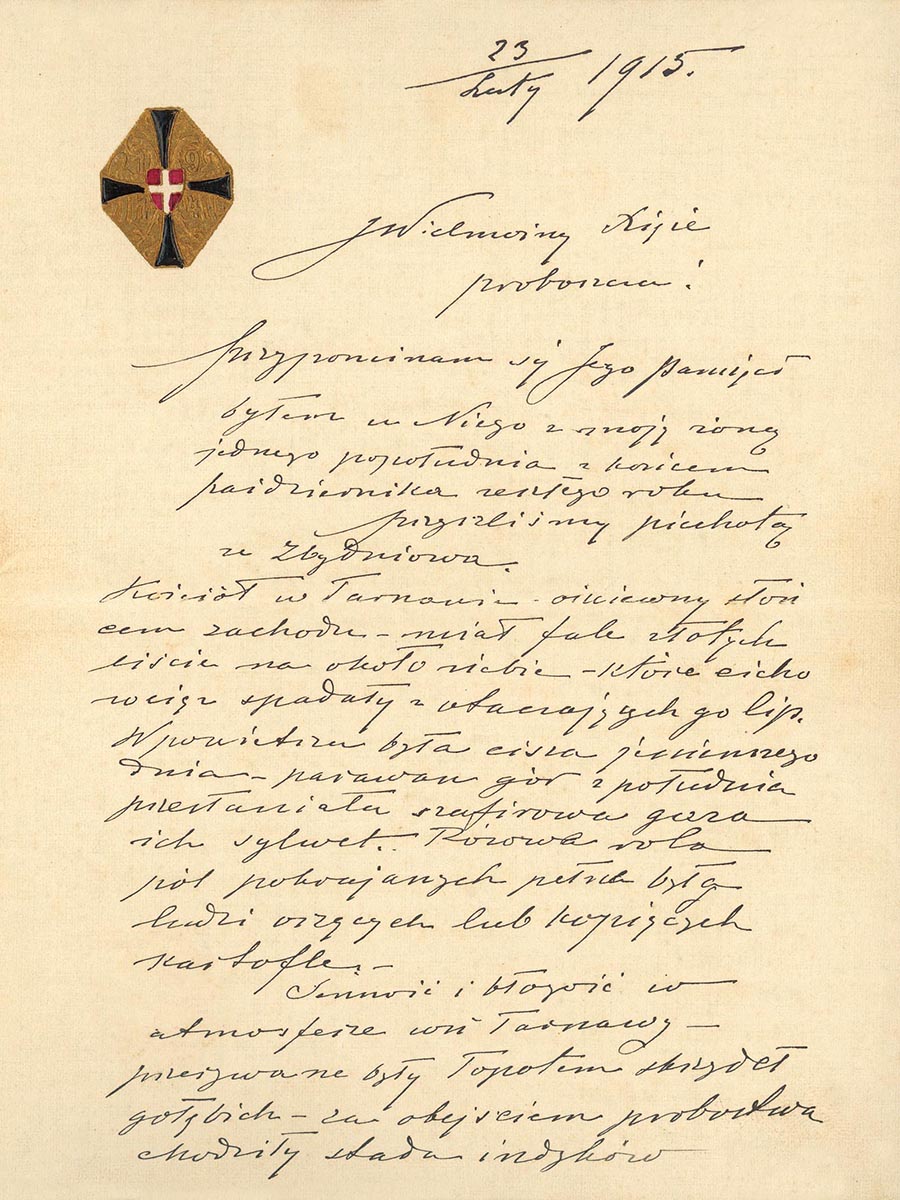 23
Luty 1915.
JWielmożny Księże
proboszczu!
Przypominam się Jego Pamięci
byłem u Niego z moją żoną
jednego popołudnia z końcem
października zeszłego roku
przyszliśmy piechotą
ze Zbydniowa.
Kościół w Tarnawie – oświewny słoń
cem zachodu – miał fale złotych
liście na około siebie – które cicho
wciąż spadały z otaczających go lip.
W powietrzu była cisza jesiennego
dnia – parawan gór z południa
przesłaniała szafirowa gaza
ich sylwet. Różowa rola
pól pokrajanych pełna była
ludzi orzących lub kopiących
kartofle. –
Senność i błogość w
atmosferze wsi Tarnawy –
przerywane były łopotem skrzydeł
gołębich – za obejściem probostwa
chodziły stada indyków